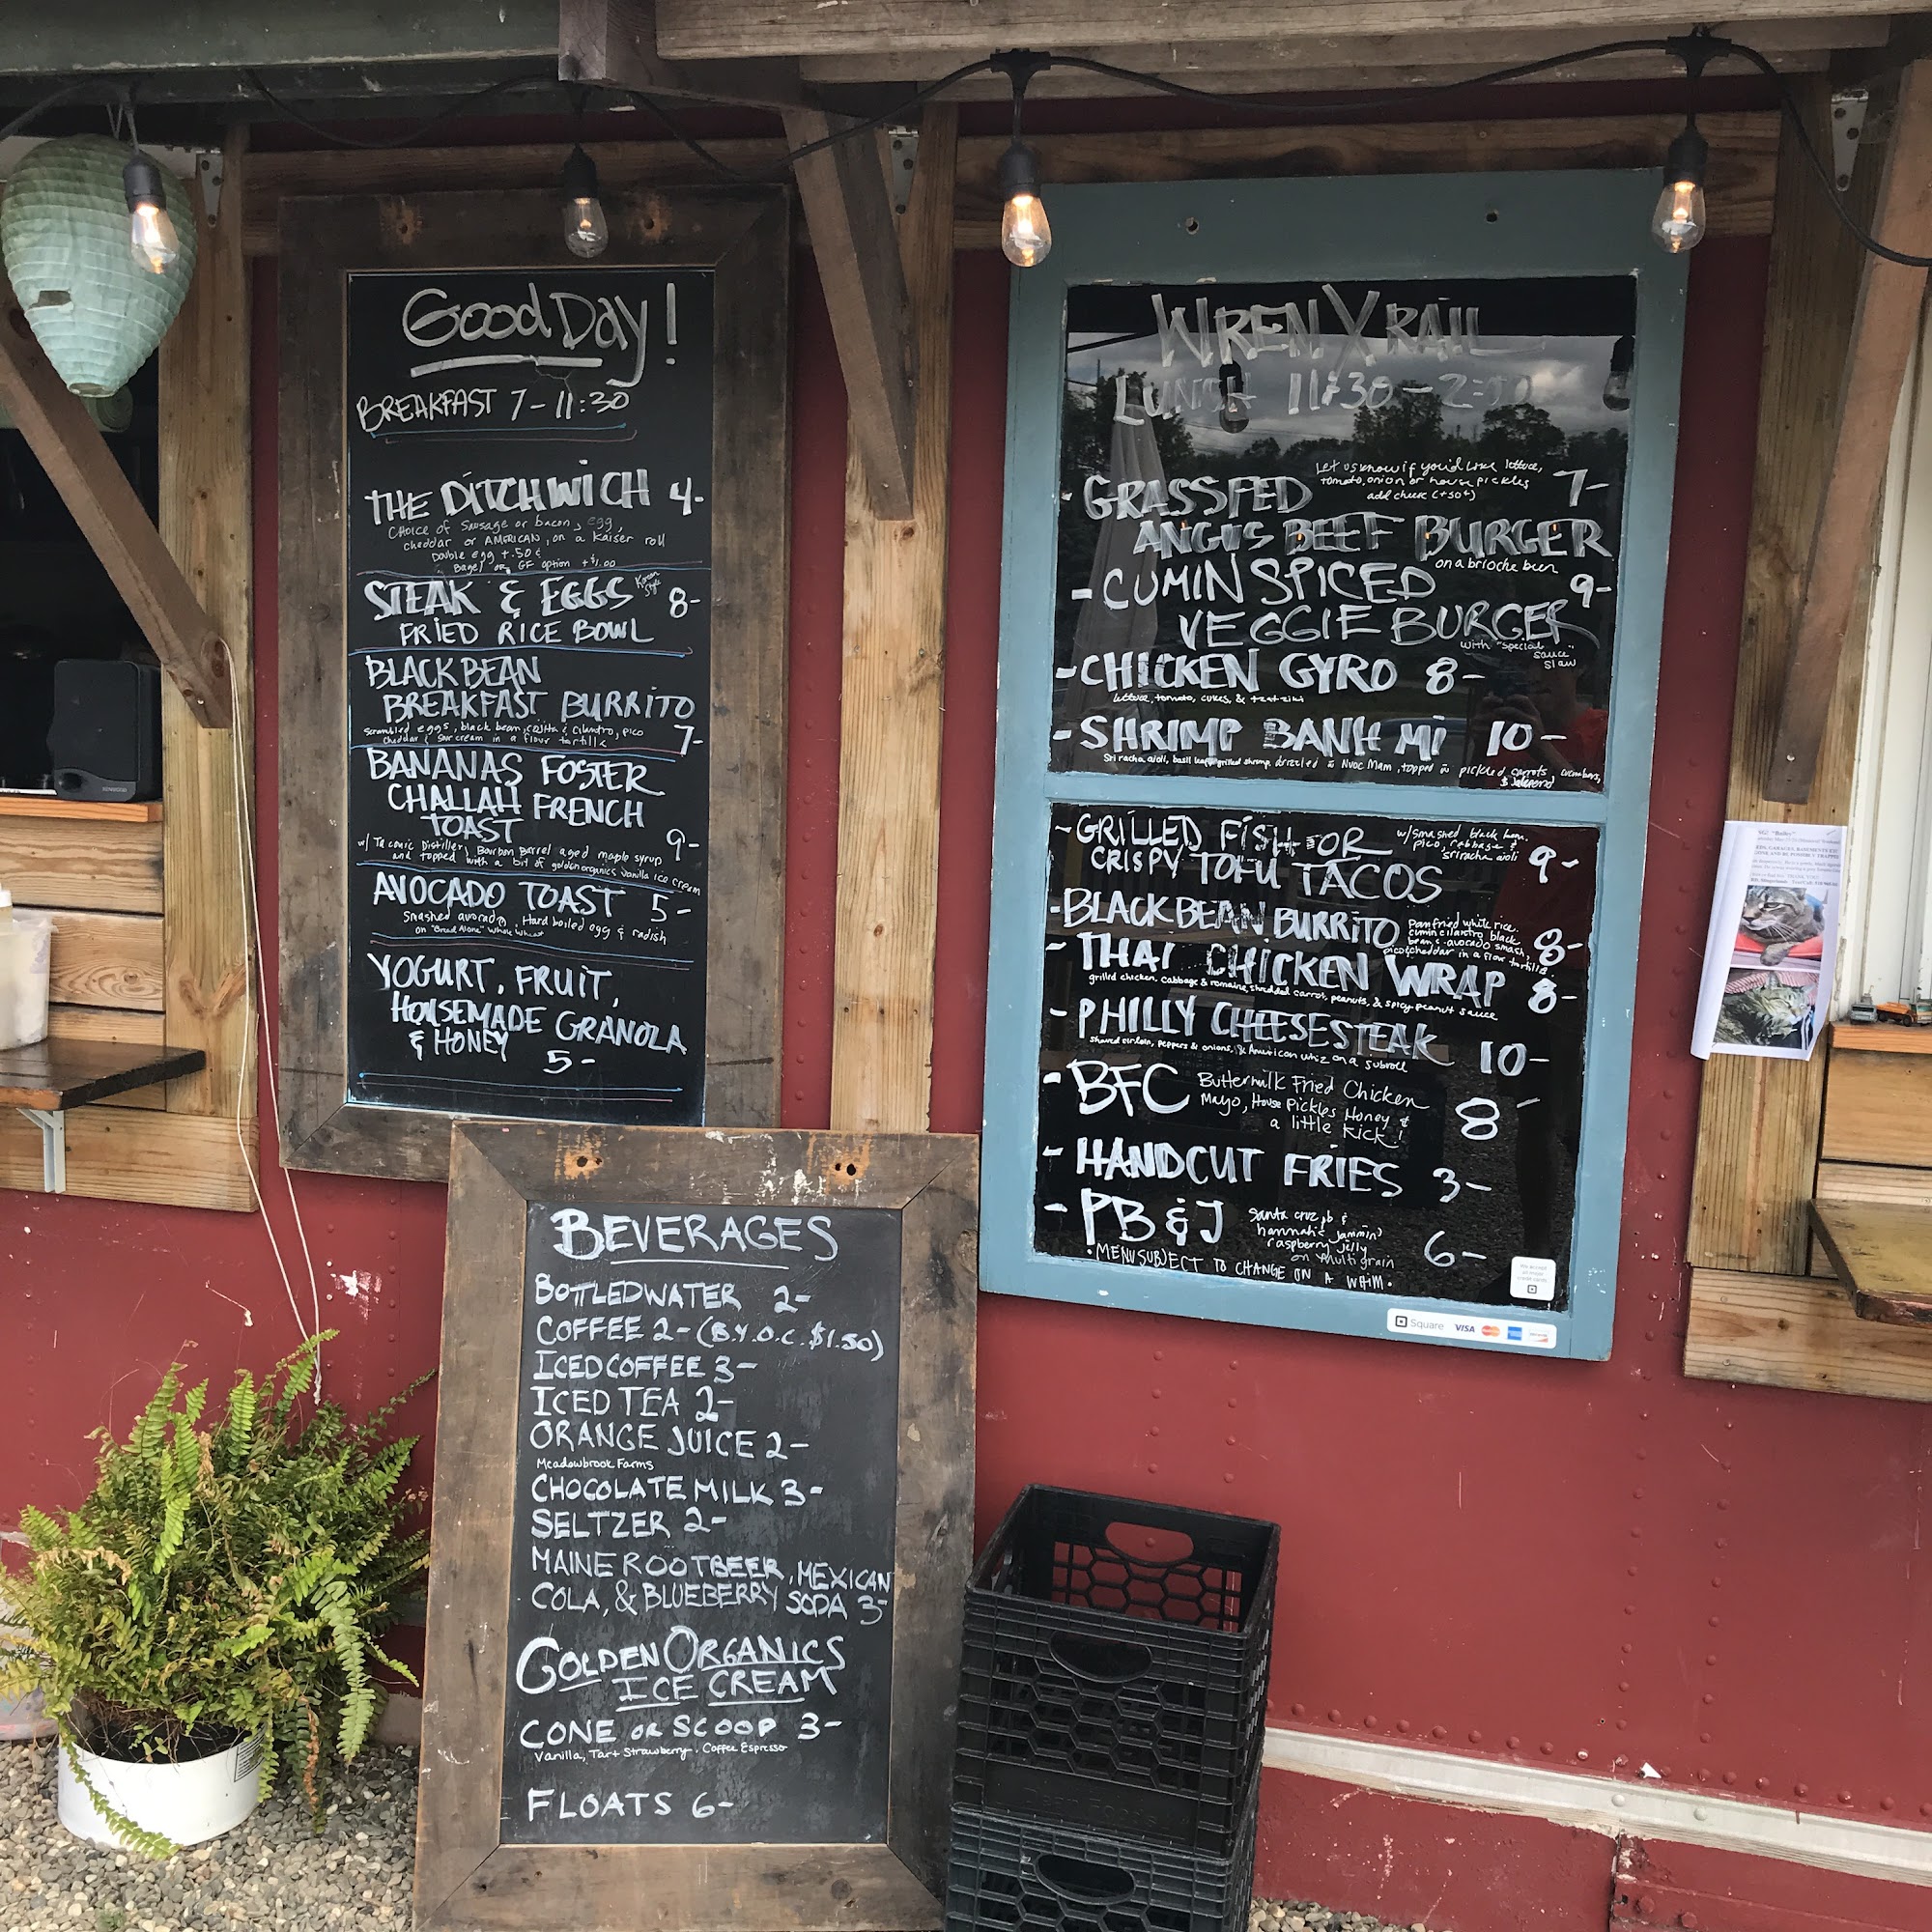 Good Day!
BREAKFAST 7-11:30
THE DITCHWICH 4-
CHOICE of Sausage or bacon, egg,
cheddar or AMERICAN, on a Kaiser roll
Double egg +.50¢
Bagel or GF option +$1.00
STEAK & EGGS Korean Style 8-
FRIED RICE BOWL
BLACK BEAN
BREAKFAST BURRITO
Scrambled eggs, black bean, cilantro, pico
cheddar & sour cream in a flour tortilla 7-
BANANAS FOSTER
CHALLAH FRENCH
TOAST 9-
w/ Taconic Distillery Bourbon Barrel aged maple syrup
and topped with a bit of golden organics vanilla ice cream
AVOCADO TOAST 5-
Smashed avocado, Hard boiled egg & radish
on "Bread Alone" whole wheat
YOGURT, FRUIT,
HOUSEMADE GRANOLA
& HONEY 5-
BEVERAGES
BOTTLED WATER 2-
COFFEE 2- (B.Y.O.C. $1.50)
ICED COFFEE 3-
ICED TEA 2-
ORANGE JUICE 2-
Meadowbrook Farms
CHOCOLATE MILK 3-
SELTZER 2-
MAINE ROOTBEER, MEXICAN
COLA, & BLUEBERRY SODA 3-
GOLDEN ORGANICS
ICE CREAM
CONE OR SCOOP 3-
Vanilla, Tart Strawberry, Coffee Espresso
FLOATS 6-
WREN X RAIL
LUNCH 11:30-2:00
Let us know if you'd like lettuce,
tomato, onion or house pickles
add cheese (+50¢)
- GRASSFED 7-
ANGUS BEEF BURGER
on a brioche bun
- CUMIN SPICED 9-
VEGGIE BURGER
with "special sauce" slaw
- CHICKEN GYRO 8-
lettuce, tomato, cukes, & tzatziki
- SHRIMP BANH MI 10-
Sriracha aioli, basil grilled shrimp drizzled in Nuoc Mam, topped w pickled carrots, cucumbers,
& jalapeno
- GRILLED FISH OR
CRISPY TOFU TACOS 9-
w/ smashed black bean,
pico, cabbage &
sriracha aioli
- BLACK BEAN BURRITO 8-
Pan fried white rice,
cumin cilantro black
beans, avocado smash,
pico & cheddar in a flour tortilla
- THAI CHICKEN WRAP 8-
grilled chicken, cabbage & romaine, shredded carrot, peanuts, & spicy peanut sauce
- PHILLY CHEESESTEAK 10-
shaved sirloin, peppers & onions, & American whiz on a subroll
- BFC Buttermilk Fried Chicken 8-
Mayo, House Pickles Honey &
a little kick!
- HANDCUT FRIES 3-
- PB & J 6-
Santa cruz pb &
hannah's jammin'
raspberry jelly
on multigrain
• MENU SUBJECT TO CHANGE ON A WHIM •
Square VISA
KENWOOD